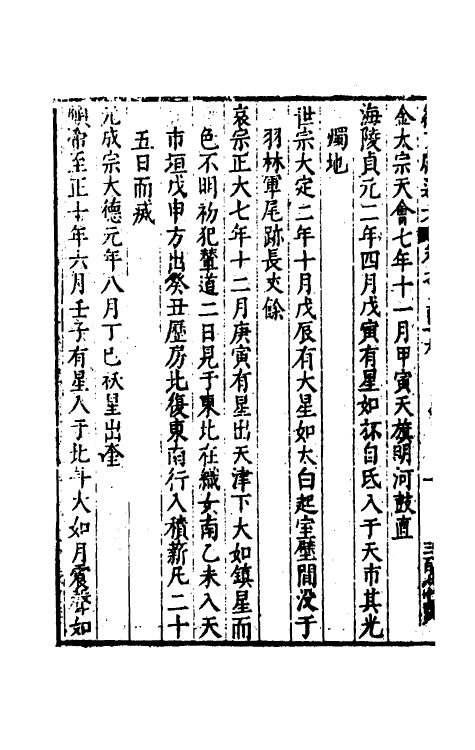 金太宗天會七年十一月甲寅天旗明河鼓直
海陵貞元二年四月戊寅有星如杯自氐入于天市其光
燭地
世宗大定二年十月戊辰有大星如太白起室壁間没于
羽林軍尾跡長丈餘
哀宗正大七年十二月庚寅有星出天津下大如鎮星而
色不明初犯輦道二日見于東北在織女南乙未入天
市垣戊申方出癸丑歷房北復東南行入積薪凡二十
五日而滅
元成宗大德元年八月丁巳祅星出奎
順帝至正十年六月壬子有星入于北斗大如月震聲如